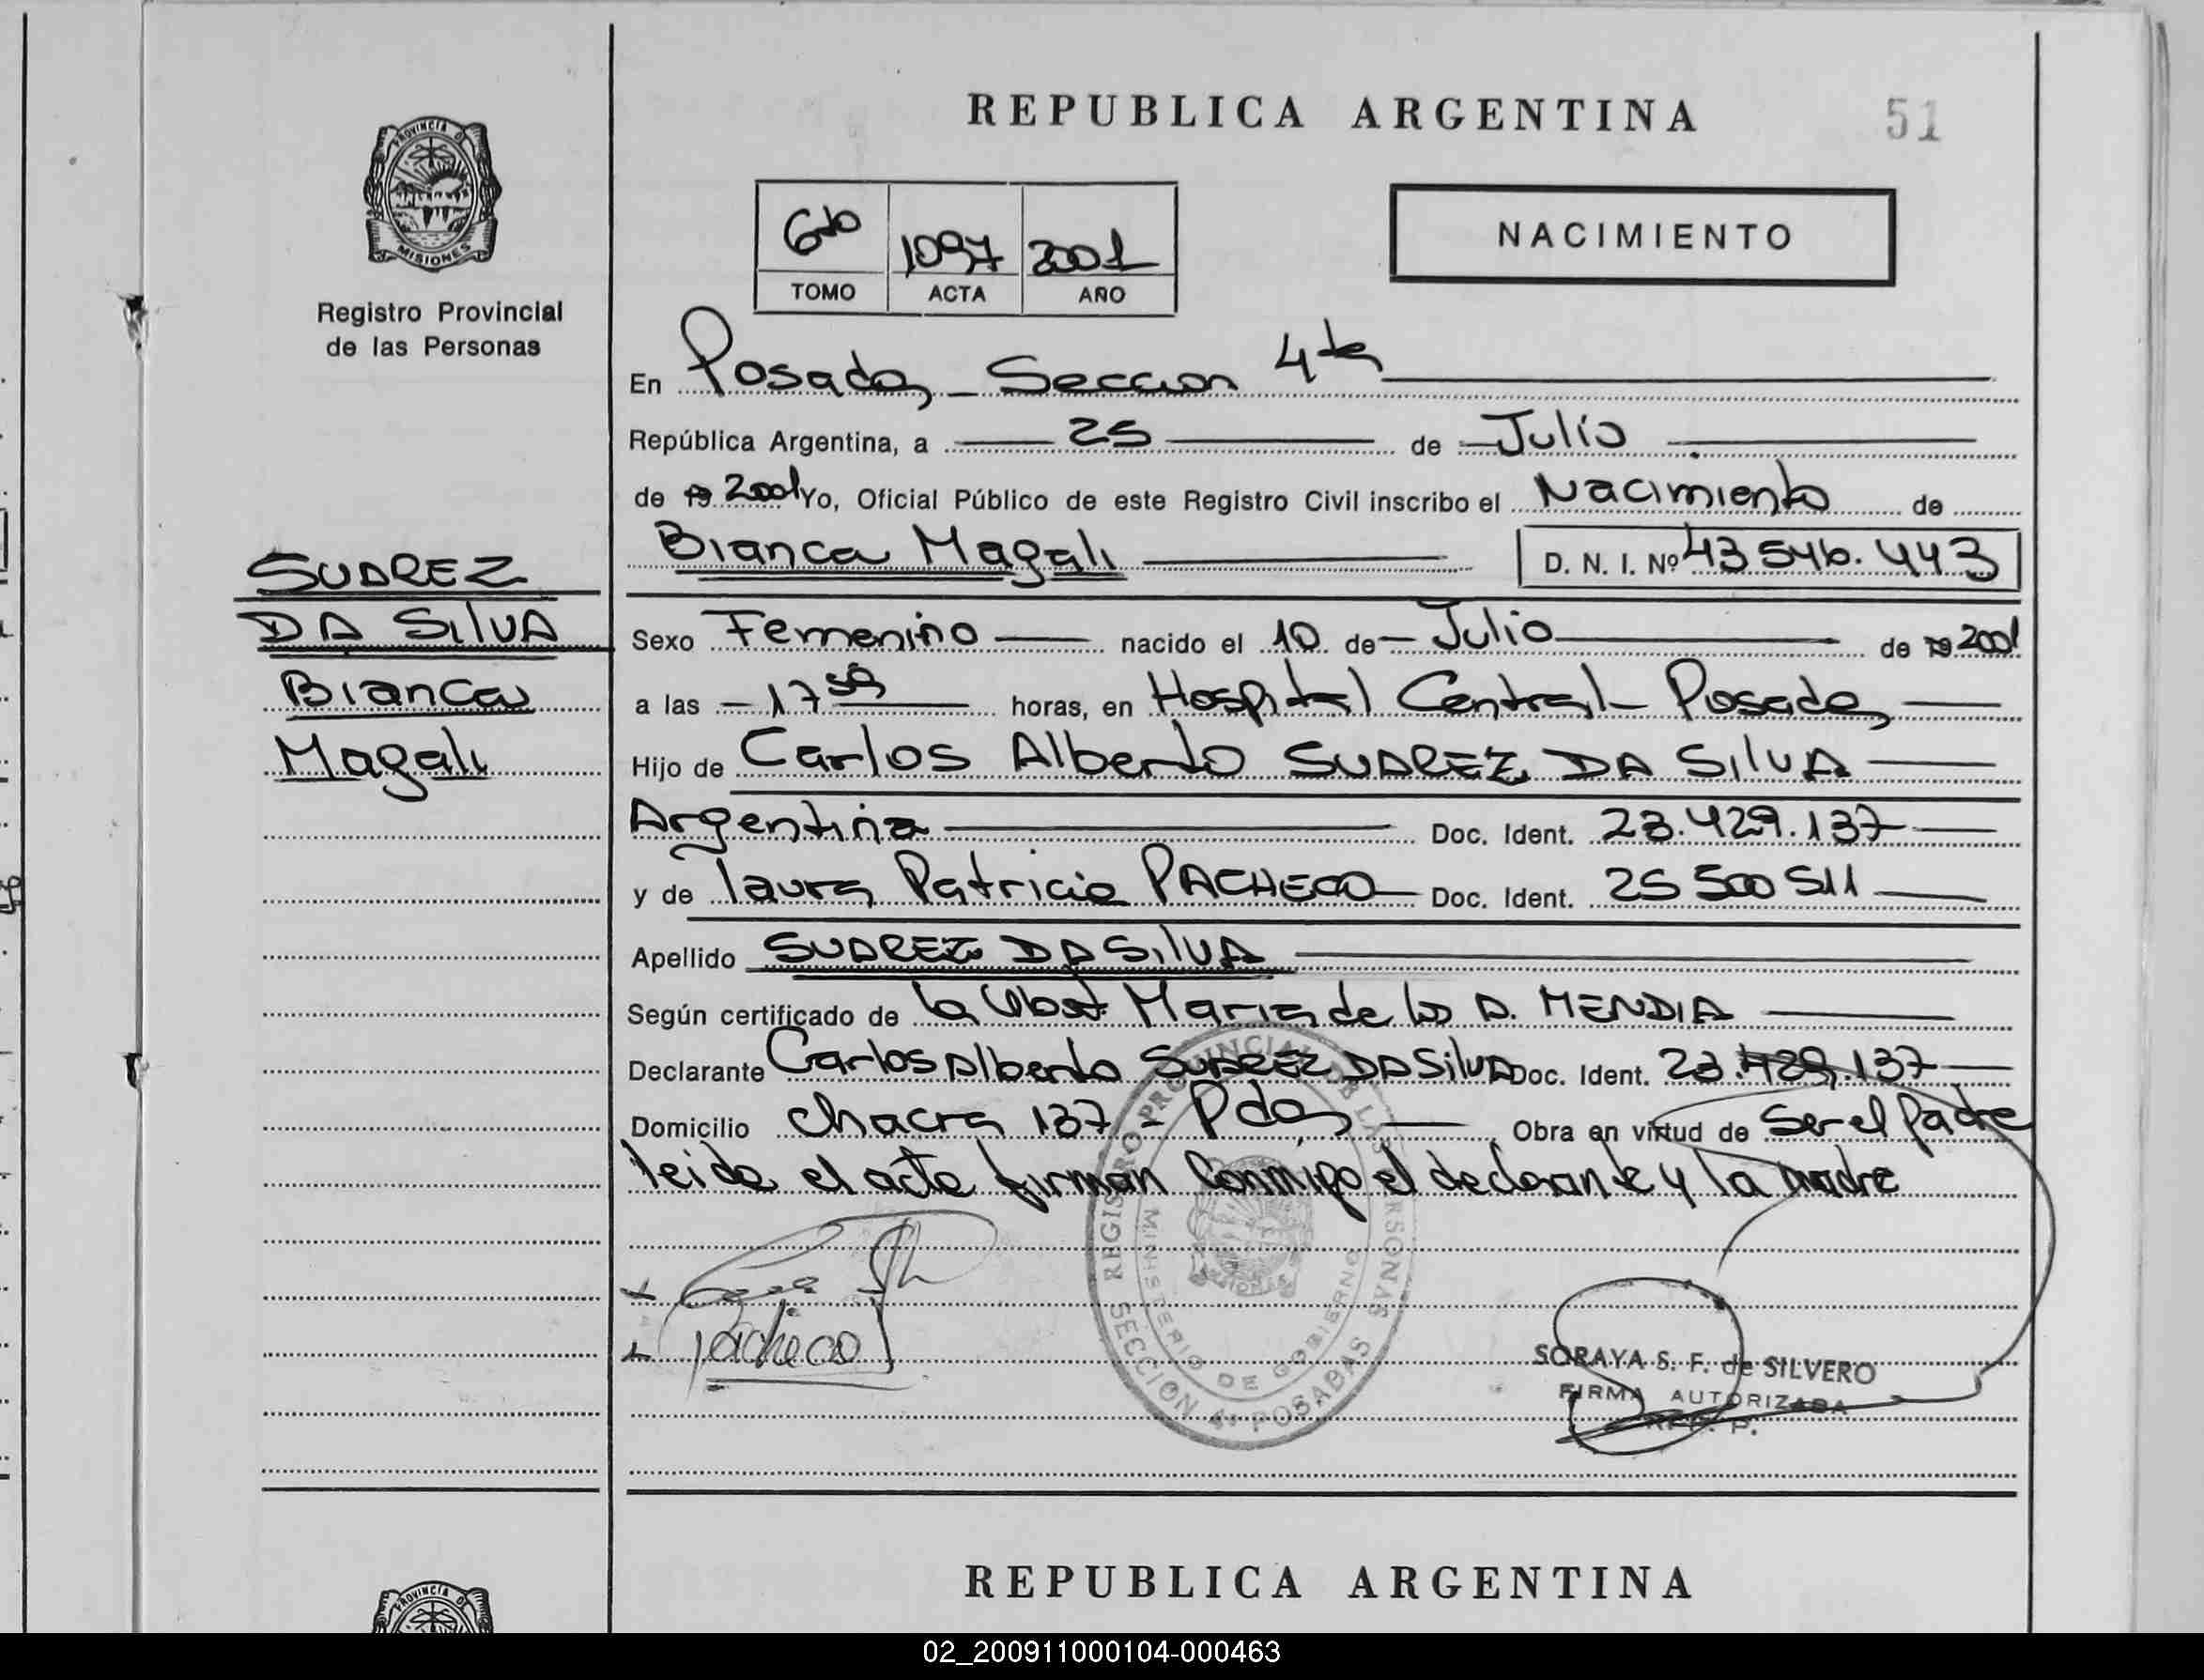 REPUBLICA ARGENTINA
51
PROVINCIA DE MISIONES
Registro Provincial
de las Personas
6to 1097 2001
TOMO ACTA AÑO
NACIMIENTO
En Posadas - Seccion 4ta
República Argentina, a 25 de Julio
de 19 2001 Yo, Oficial Público de este Registro Civil inscribo el Nacimiento de
Bianca Magali D. N. I. Nº 43 546.443
SUAREZ
DA SILVA
Bianca
Magali
Sexo Femenino nacido el 10 de Julio de 19 2001
a las 17 59 horas, en Hospital Central - Posadas
Hijo de Carlos Alberto SUAREZ DA SILVA
Argentina Doc. Ident. 23.429.137
y de Laura Patricia PACHECO Doc. Ident. 25 500 511
Apellido SUAREZ DA SILVA
Según certificado de la Obst Maria de los A. MENDIA
Declarante Carlos Alberto SUAREZ DA SILVA Doc. Ident. 23.429.137
Domicilio Chacra 137 - Pdas Obra en virtud de Ser el padre
leida el acta firman conmigo el declarante y la madre
Pacheco
REGISTRO PROVINCIAL DE LAS PERSONAS
MINISTERIO DE GOBIERNO
SECCION 4ª POSADAS
SORAYA S. F. de SILVERO
FIRMA AUTORIZADA
R.P.P.
REPUBLICA ARGENTINA
PROVINCIA DE
02_200911000104-000463